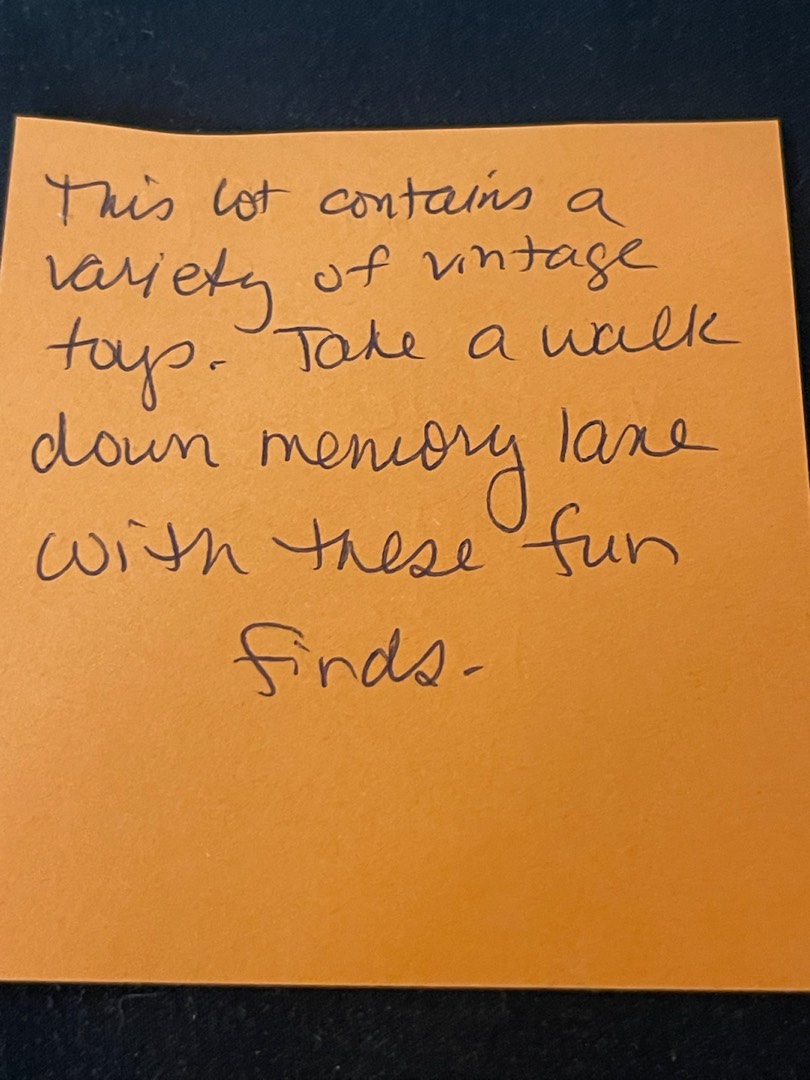 This lot contains a
variety of vintage
toys. Take a walk
down memory lane
with these fun
finds.